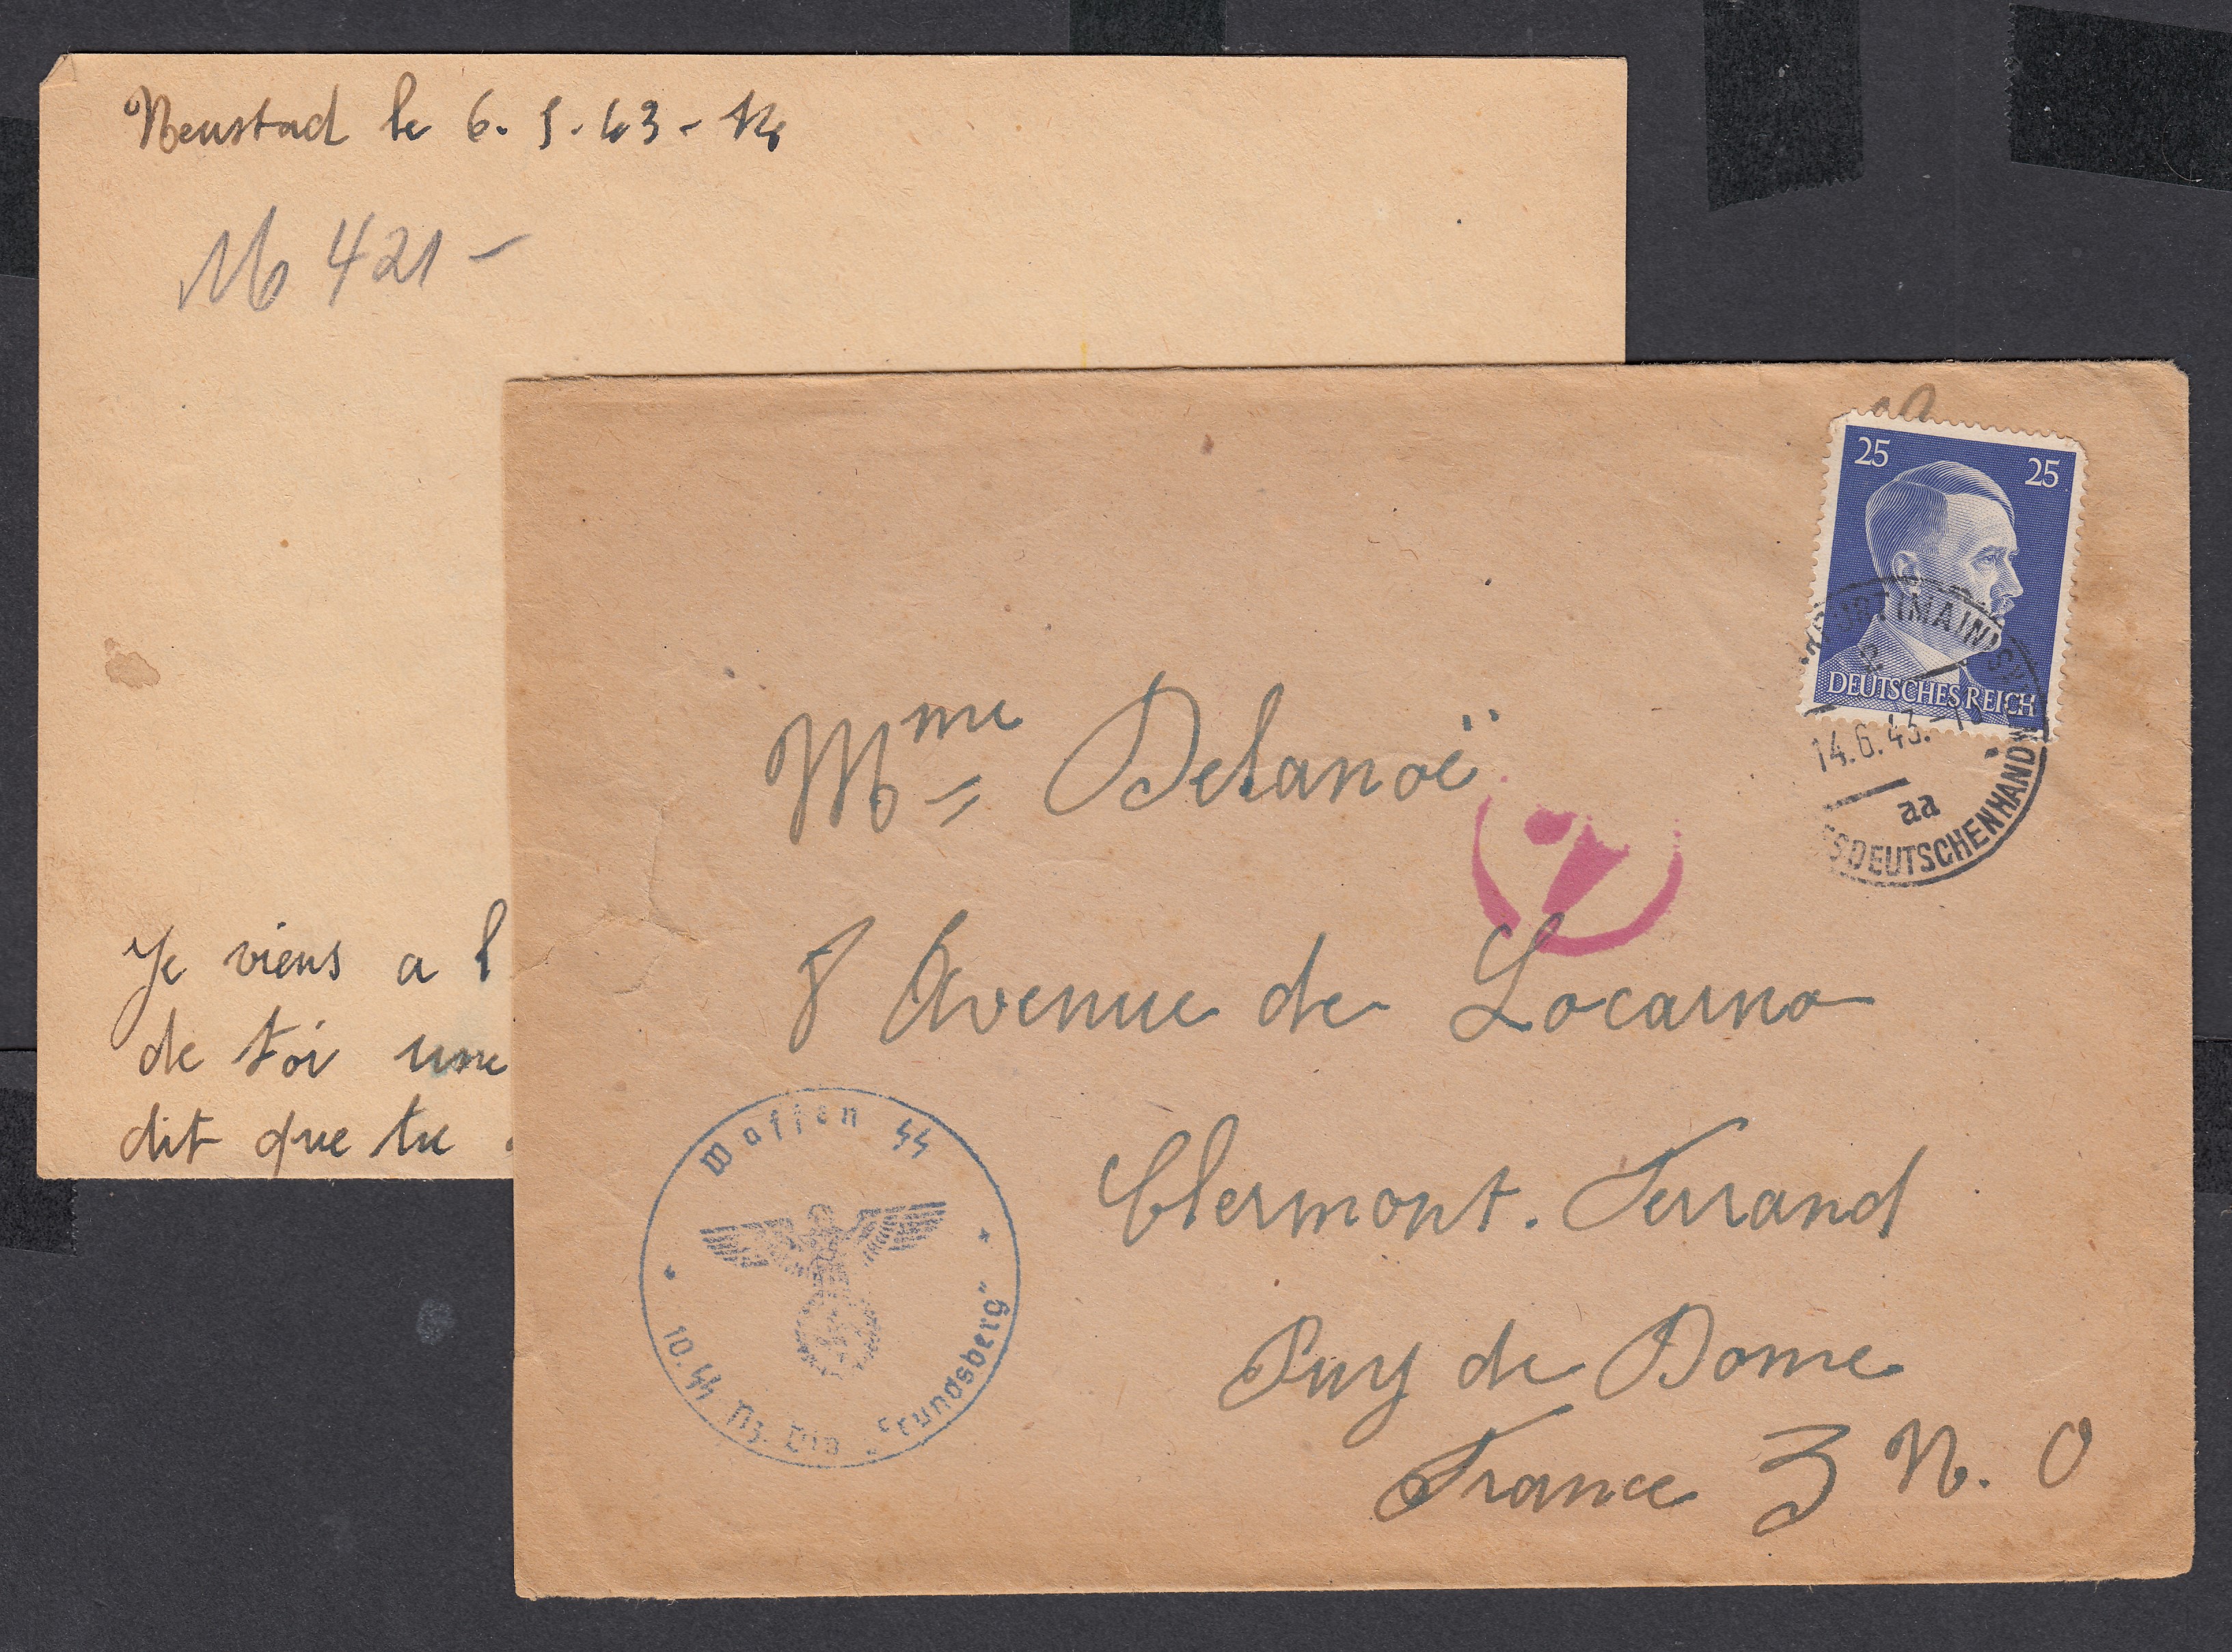 Neustad le 6. 5. 43 - 14
M 421 -
Je viens a l
de toi une
dit que tu
25 25
DEUTSCHES REICH
FURT (MAIN) S
14.6.43.
aa
S DEUTSCHEN HAND
Mme Delanoë
8 Avenue de Locarno
Clermont. Ferrand
Puy de Dome
France Z N. O
Waffen SS
10. SS Pz. Div „Frundsberg“